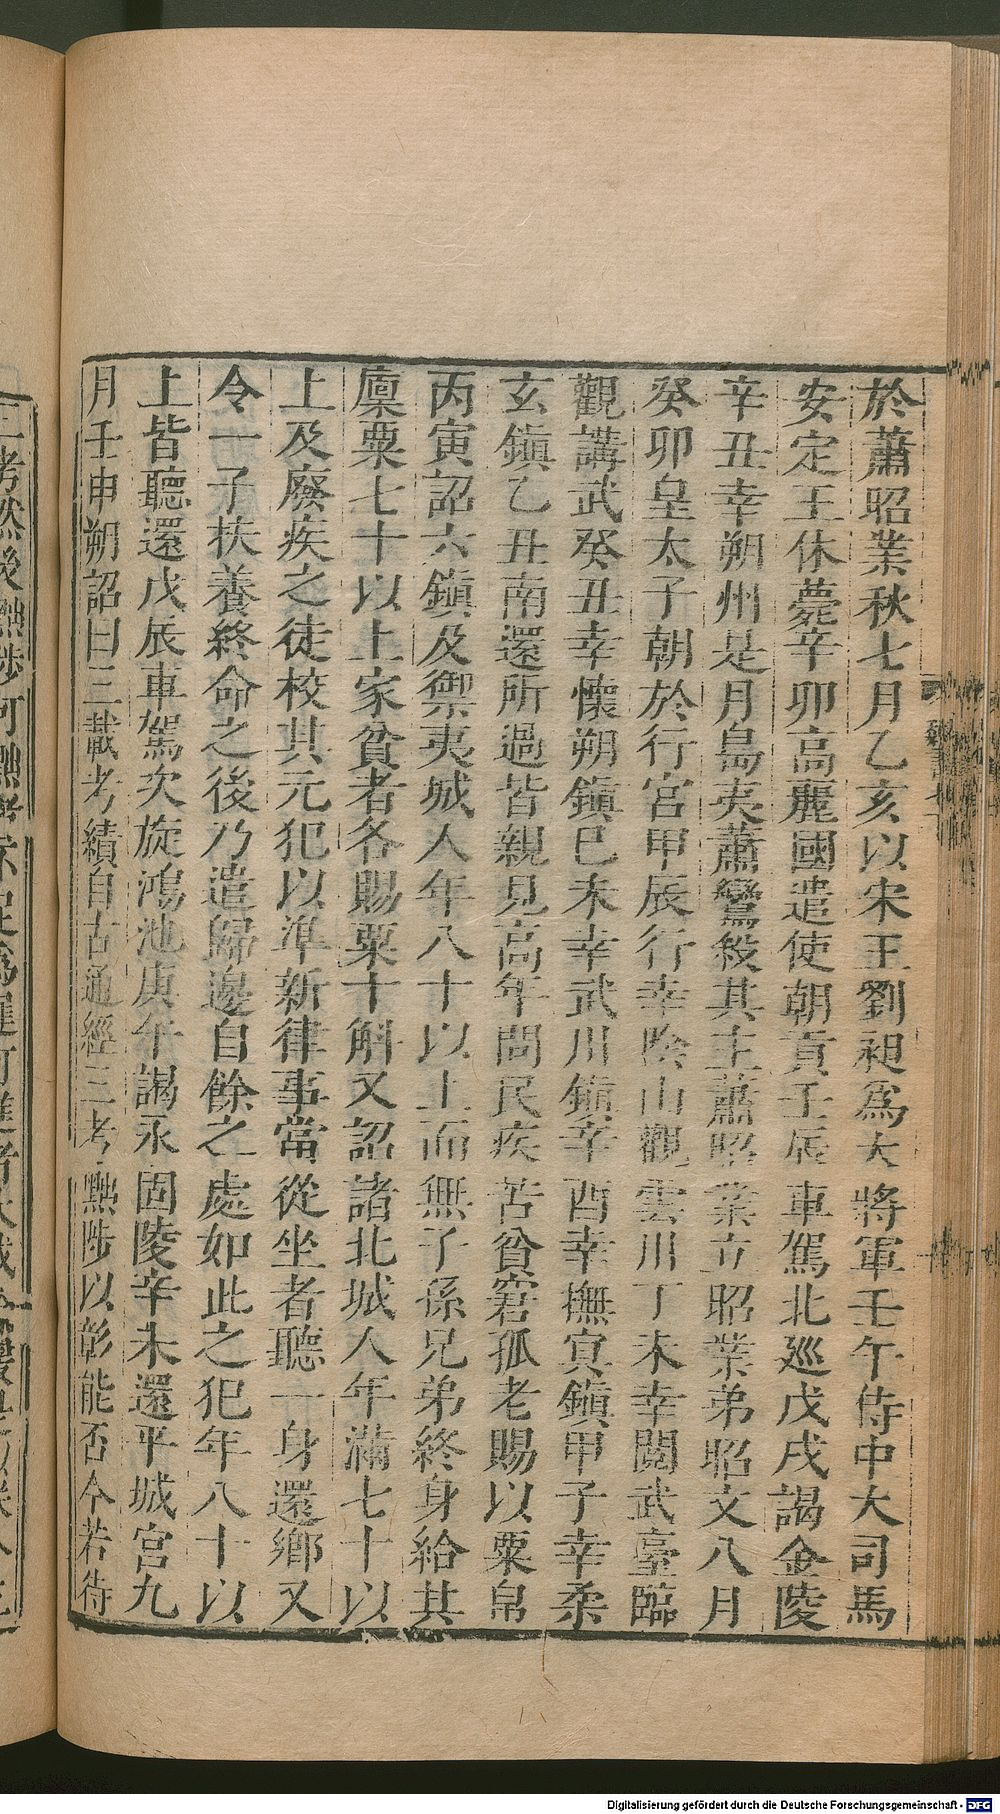 於蕭昭業秋七月乙亥以宋王劉昶爲大將軍壬午侍中大司馬
安定王休薨辛卯高麗國遣使朝貢壬辰車駕北廵戊戌謁金陵
辛丑幸朔州是月島夷蕭鸞殺其主蕭昭業立昭業弟昭文八月
癸卯皇太子朝於行宮甲辰行幸陰山觀雲川丁未幸閱武臺臨
觀講武癸丑幸懷朔鎮巳未幸武川鎮辛酉幸撫冥鎮甲子幸柔
玄鎮乙丑南還所過皆親見高年問民疾苦貧窘孤老賜以粟帛
丙寅詔六鎮及禦夷城人年八十以上而無子孫兄弟終身給其
廩粟七十以上家貧者各賜粟十斛又詔諸北城人年滿七十以
上及廢疾之徒校其元犯以準新律事當從坐者聽一身還鄉又
令一子扶養終命之後乃遣歸邊自餘之處如此之犯年八十以
上皆聽還戊辰車駕次旋鴻池庚午謁永固陵辛未還平城宮九
月壬申朔詔曰三載考績自古通經三考黜陟以彰能否今若待
Digitalisierung gefördert durch die Deutsche Forschungsgemeinschaft - DFG